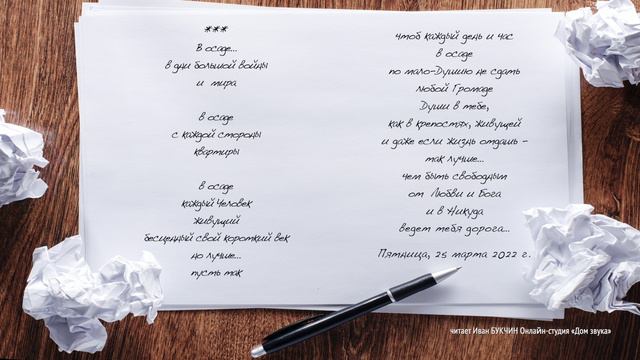 ***
В осаде...
в дни большой войны
и мира
в осаде
с каждой стороны
квартиры
в осаде
каждый Человек
живущий
бесценный свой короткий век
но лучше...
пусть так
чтоб каждый день и час
в осаде
по мало-Душию не сдать
любой Громаде
Души в тебе,
как в крепостях, живущей
и даже если жизнь отдашь –
так лучше...
чем быть свободным
от Любви и Бога
и в Никуда
ведет тебя дорога...
Пятница, 25 марта 2022 г.
читает Иван БУКЧИН Онлайн-студия «Дом звука»